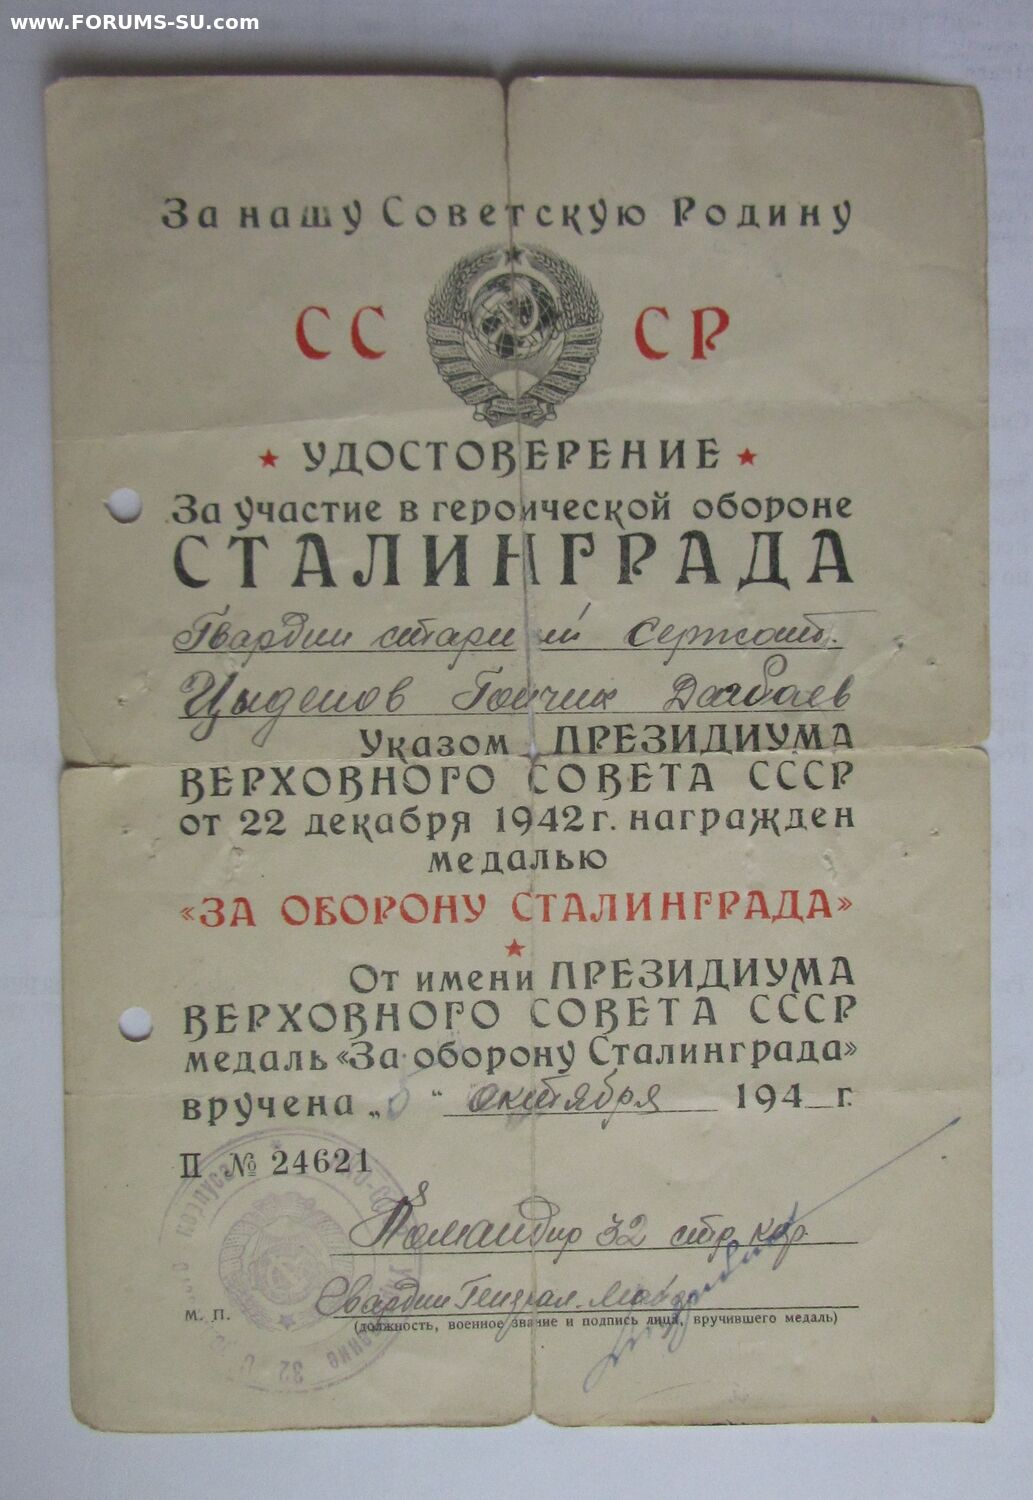 www.FORUMS-SU.com
За нашу Советскую Родину
СС СР
УДОСТОВЕРЕНИЕ
За участие в героической обороне
СТАЛИНГРАДА
Гвардии старший сержант.
Цыденов Гончик Дагбаев
Указом ПРЕЗИДИУМА
ВЕРХОВНОГО СОВЕТА СССР
от 22 декабря 1942 г. награжден
медалью
«ЗА ОБОРОНУ СТАЛИНГРАДА»
От имени ПРЕЗИДИУМА
ВЕРХОВНОГО СОВЕТА СССР
медаль «За оборону Сталинграда»
вручена „5“ октября 194 г.
П № 24621
Командир 32 стр. кор.
Гвардии Генерал-
м. п.
(должность, военное звание и подпись лица, вручившего медаль)
корпуса
32